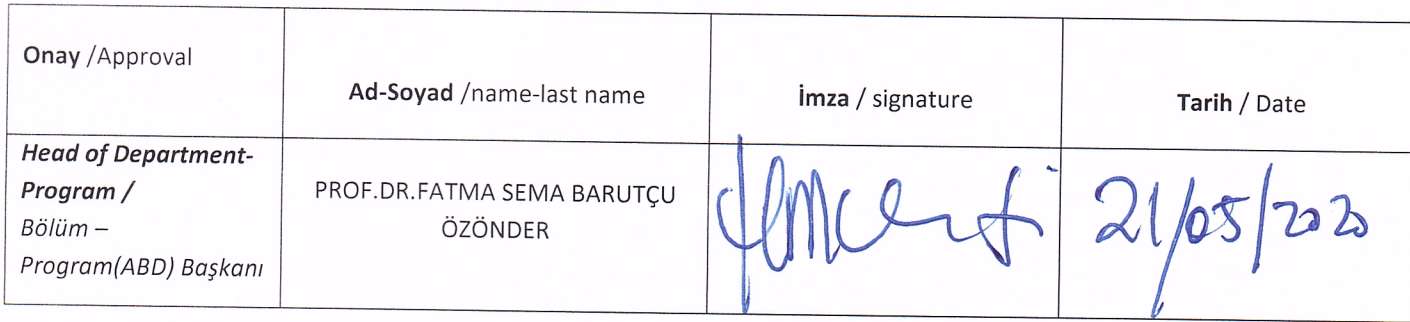 Onay /Approval
Ad-Soyad /name-last name
İmza / signature
Tarih / Date
Head of Department-
Program /
Bölüm –
Program(ABD) Başkanı
PROF.DR.FATMA SEMA BARUTÇU
ÖZÖNDER
21/05/2020